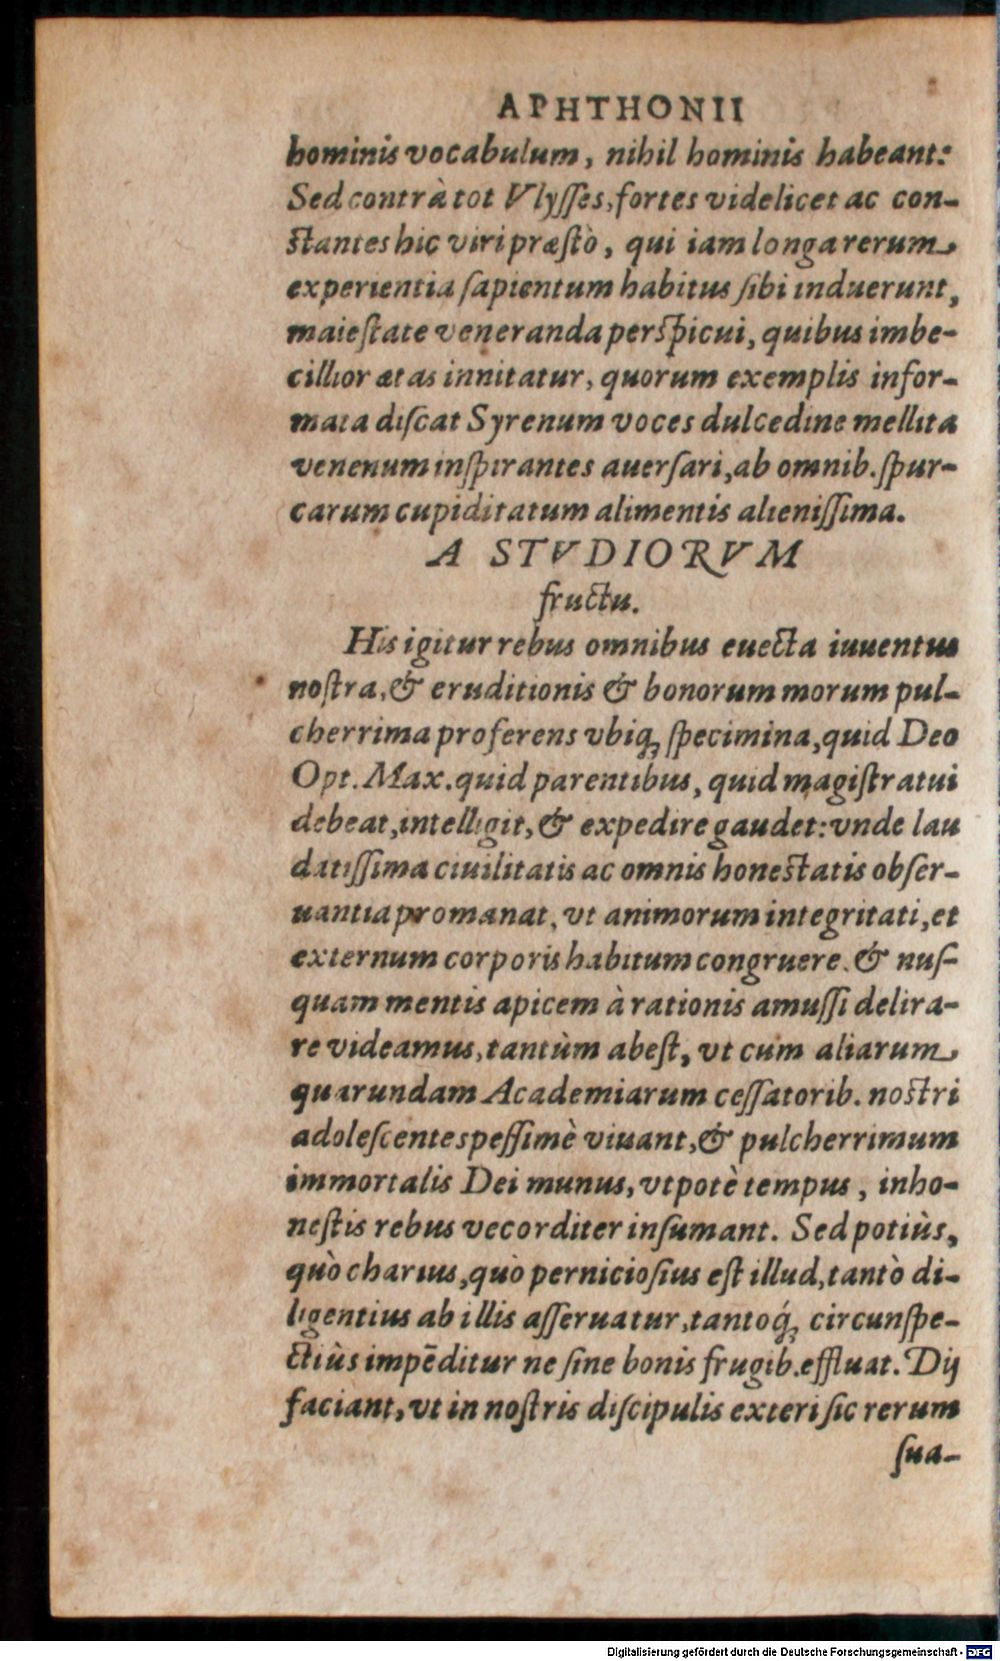 APHTHONII
hominis vocabulum, nihil hominis habeant:
Sed contrà tot Vlyſſes, fortes videlicet ac con-
ſtantes hic viri præſtò, qui iam longa rerum
experientia ſapientum habitus ſibi induerunt,
maieſtate veneranda perſpicui, quibus imbe-
cillior ætas innitatur, quorum exemplis infor-
mata diſcat Syrenum voces dulcedine mellita
venenum inſpirantes auerſari, ab omnib. ſpur-
carum cupiditatum alimentis alieniſſima.
A STVDIORVM
fructu.
His igitur rebus omnibus euecta iuuentus
noſtra, & eruditionis & bonorum morum pul-
cherrima proferens vbiq; ſpecimina, quid Deo
Opt. Max. quid parentibus, quid magiſtratui
debeat, intelligit, & expedire gaudet: vnde lau
datiſſima ciuilitatis ac omnis honeſtatis obſer-
uantia promanat, vt animorum integritati, et
externum corporis habitum congruere. & nuſ-
quam mentis apicem à rationis amuſſi delira-
re videamus, tantùm abeſt, vt cum aliarum
quarundam Academiarum ceſſatorib. noſtri
adoleſcentes peſſimè viuant, & pulcherrimum
immortalis Dei munus, vtpotè tempus, inho-
neſtis rebus vecorditer inſumant. Sed potiùs,
quò charius, quò pernicioſius eſt illud, tantò di-
ligentius ab illis aſſeruatur, tantoq́; circunſpe-
ctiùs impēditur ne ſine bonis frugib. effluat. Dij
faciant, vt in noſtris diſcipulis exteri ſic rerum
ſua-
Digitalisierung gefördert durch die Deutsche Forschungsgemeinschaft - DFG